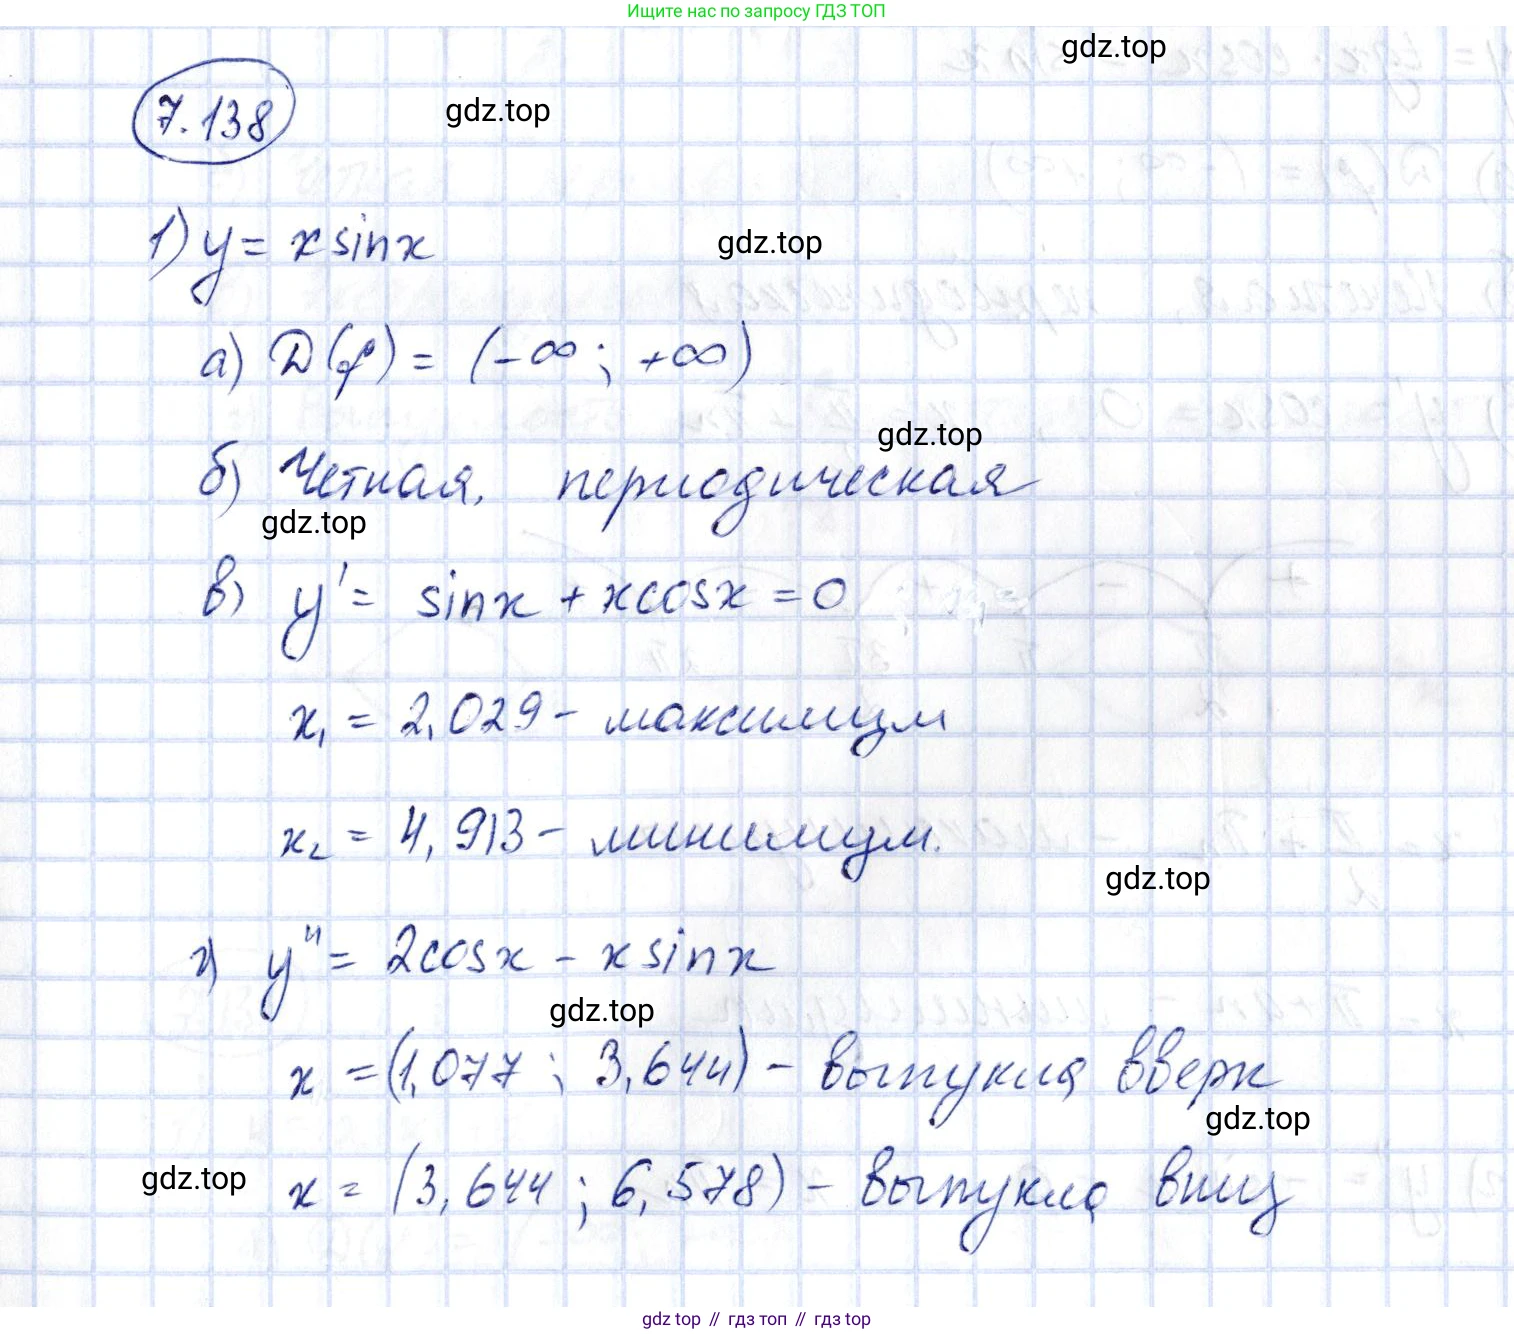 Ищите нас по запросу ГДЗ ТОП
gdz.top
7.138
gdz.top
1) y = x sinx
gdz.top
а) D(f) = (-∞; +∞)
gdz.top
б) Четная, периодическая
gdz.top
в) y' = sinx + xcosx = 0
x₁ = 2,029 - максимум
x₂ = 4,913 - минимум.
gdz.top
г) y'' = 2cosx - x sinx
gdz.top
x = (1,077 ; 3,644) - выпукла вверх
gdz.top
gdz.top
x = (3,644 ; 6,578) - выпукла вниз
gdz top // гдз топ // gdz top